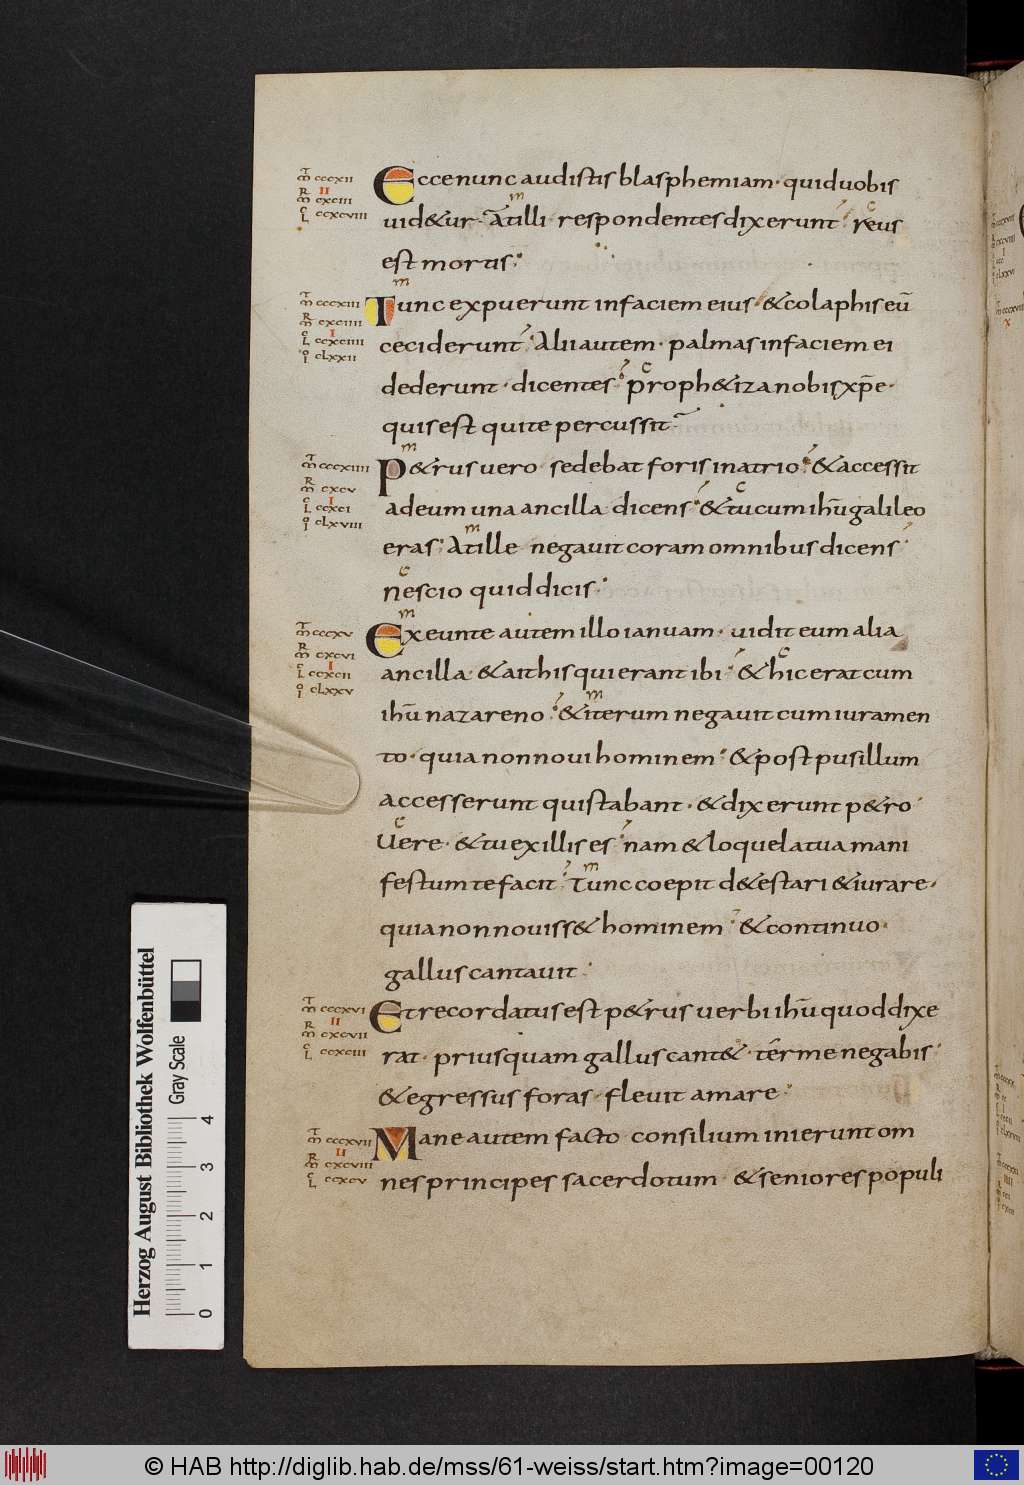 Eccenunc audistis blasphemiam· quid uobis
uid&ur· At illi· respondentes dixerunt· reus
est mortis·
Tunc expuerunt in faciem eius· & colaphis eū
ceciderunt· Alii autem· palmas in faciem ei
dederunt· dicentes· proph&iza nobis xp̄e·
quis est qui te percussit·
P&rus uero sedebat foris in atrio· & accessit
ad eum una ancilla dicens· & tu cum ihū galileo
eras· At ille negauit coram omnibus dicens·
nescio quid dicis·
Exeunte autem illo ianuam· uidit eum alia
ancilla· & ait his qui erant ibi· & hic erat cum
ihū nazareno· & iterum negauit cum iuramen
to· quia non noui hominem· & post pusillum
accesserunt qui stabant· & dixerunt p&ro
Uere· & tu ex illis es· nam & loquela tua mani
festum te facit· Tunc coepit d&estari & iurare·
quia non nouiss& hominem· & continuo·
gallus cantauit·
Et recordatus est p&rus uerbi ihū quod dixe
rat· prius quam gallus cant&· ter me negabis·
& egressus foras· fleuit amare·
Mane autem facto consilium inierunt om
nes principes sacerdotum· & seniores populi
cccxii
II
cxciii
ccxcviii
cccxiii
cxciiii
I
ccxciiii
clxxii
cccxiiii
cxcv
I
ccxci
clxviii
cccxv
cxcvi
I
ccxcii
clxxv
cccxvi
II
cxcvii
ccxciii
cccxvii
II
cxcviii
ccxcv
Herzog August Bibliothek Wolfenbüttel
Gray Scale
0 1 2 3 4
© HAB http://diglib.hab.de/mss/61-weiss/start.htm?image=00120